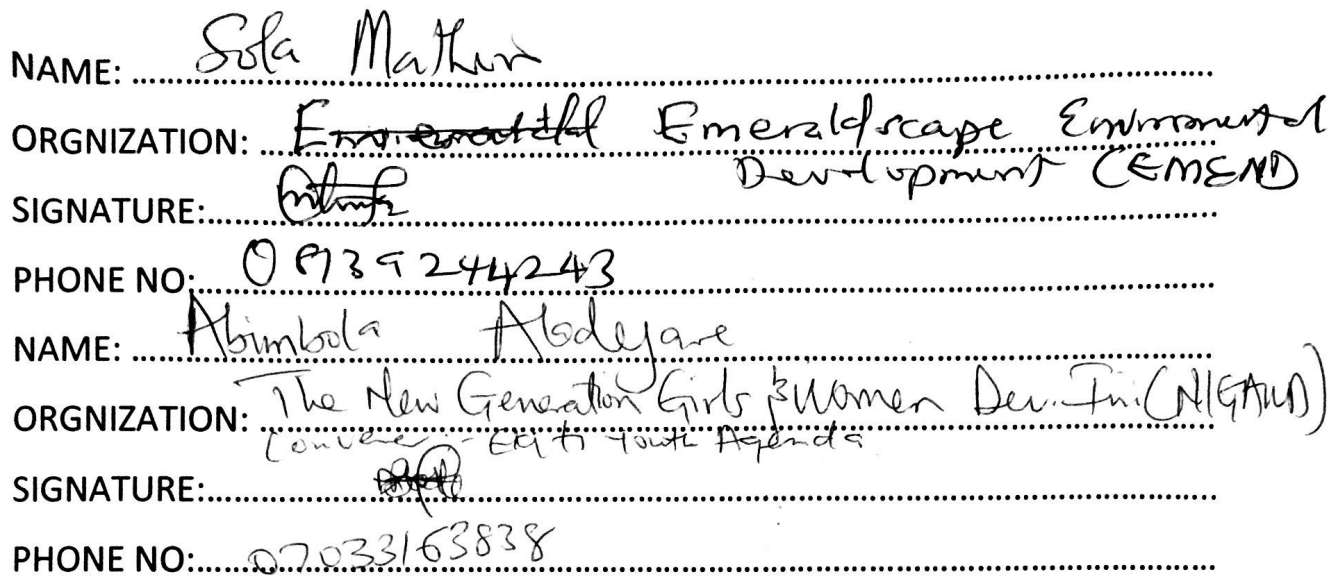 NAME: Sola Mathew
ORGNIZATION: Emeraldscape Environmental
Development (EMEND)
SIGNATURE:
PHONE NO:
NAME: Abimbola Aladejare
ORGNIZATION: The New Generation Girls & Women Dev. Ini. (NIGAWD)
Convener :- Ekiti Youth Agenda
SIGNATURE:
PHONE NO: 07033163838